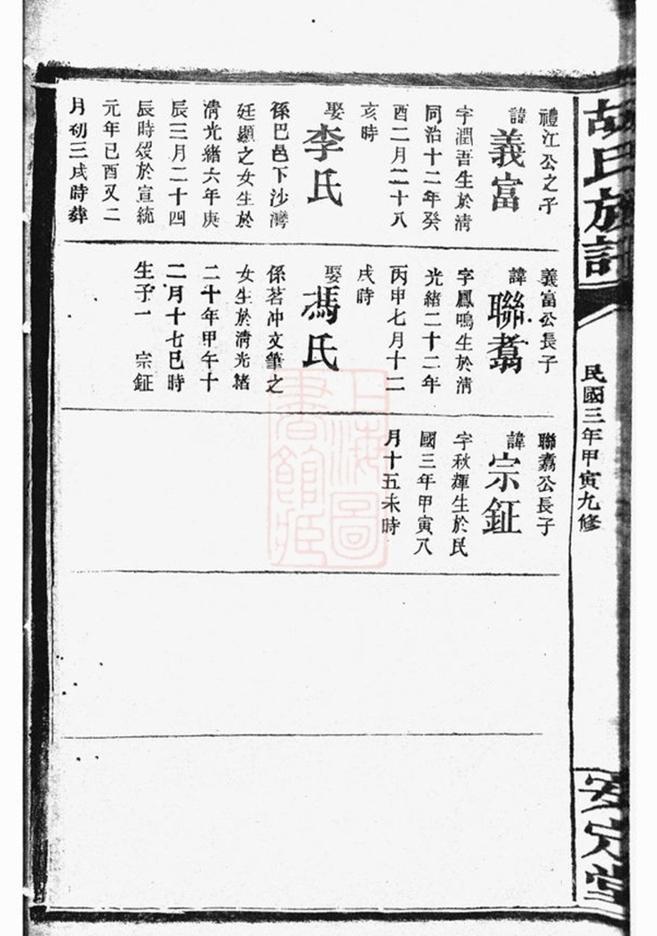 胡氏族譜
民國三年甲寅九修
安定堂
禮江公之子
諱義富
字潤吾生於清
同治十二年癸
酉二月二十八
亥時
娶李氏
係巴邑下沙灣
廷顯之女生於
清光緒六年庚
辰三月二十四
辰時歿於宣統
元年己酉又二
月初三戌時葬
義富公長子
諱聯翥
字鳳鳴生於清
光緒二十二年
丙申七月十二
戌時
娶馮氏
係茗冲文筆之
女生於清光緒
二十年甲午十
二月十七巳時
生子一 宗鉦
聯翥公長子
諱宗鉦
字秋輝生於民
國三年甲寅八
月十五未時
上海圖
書館藏